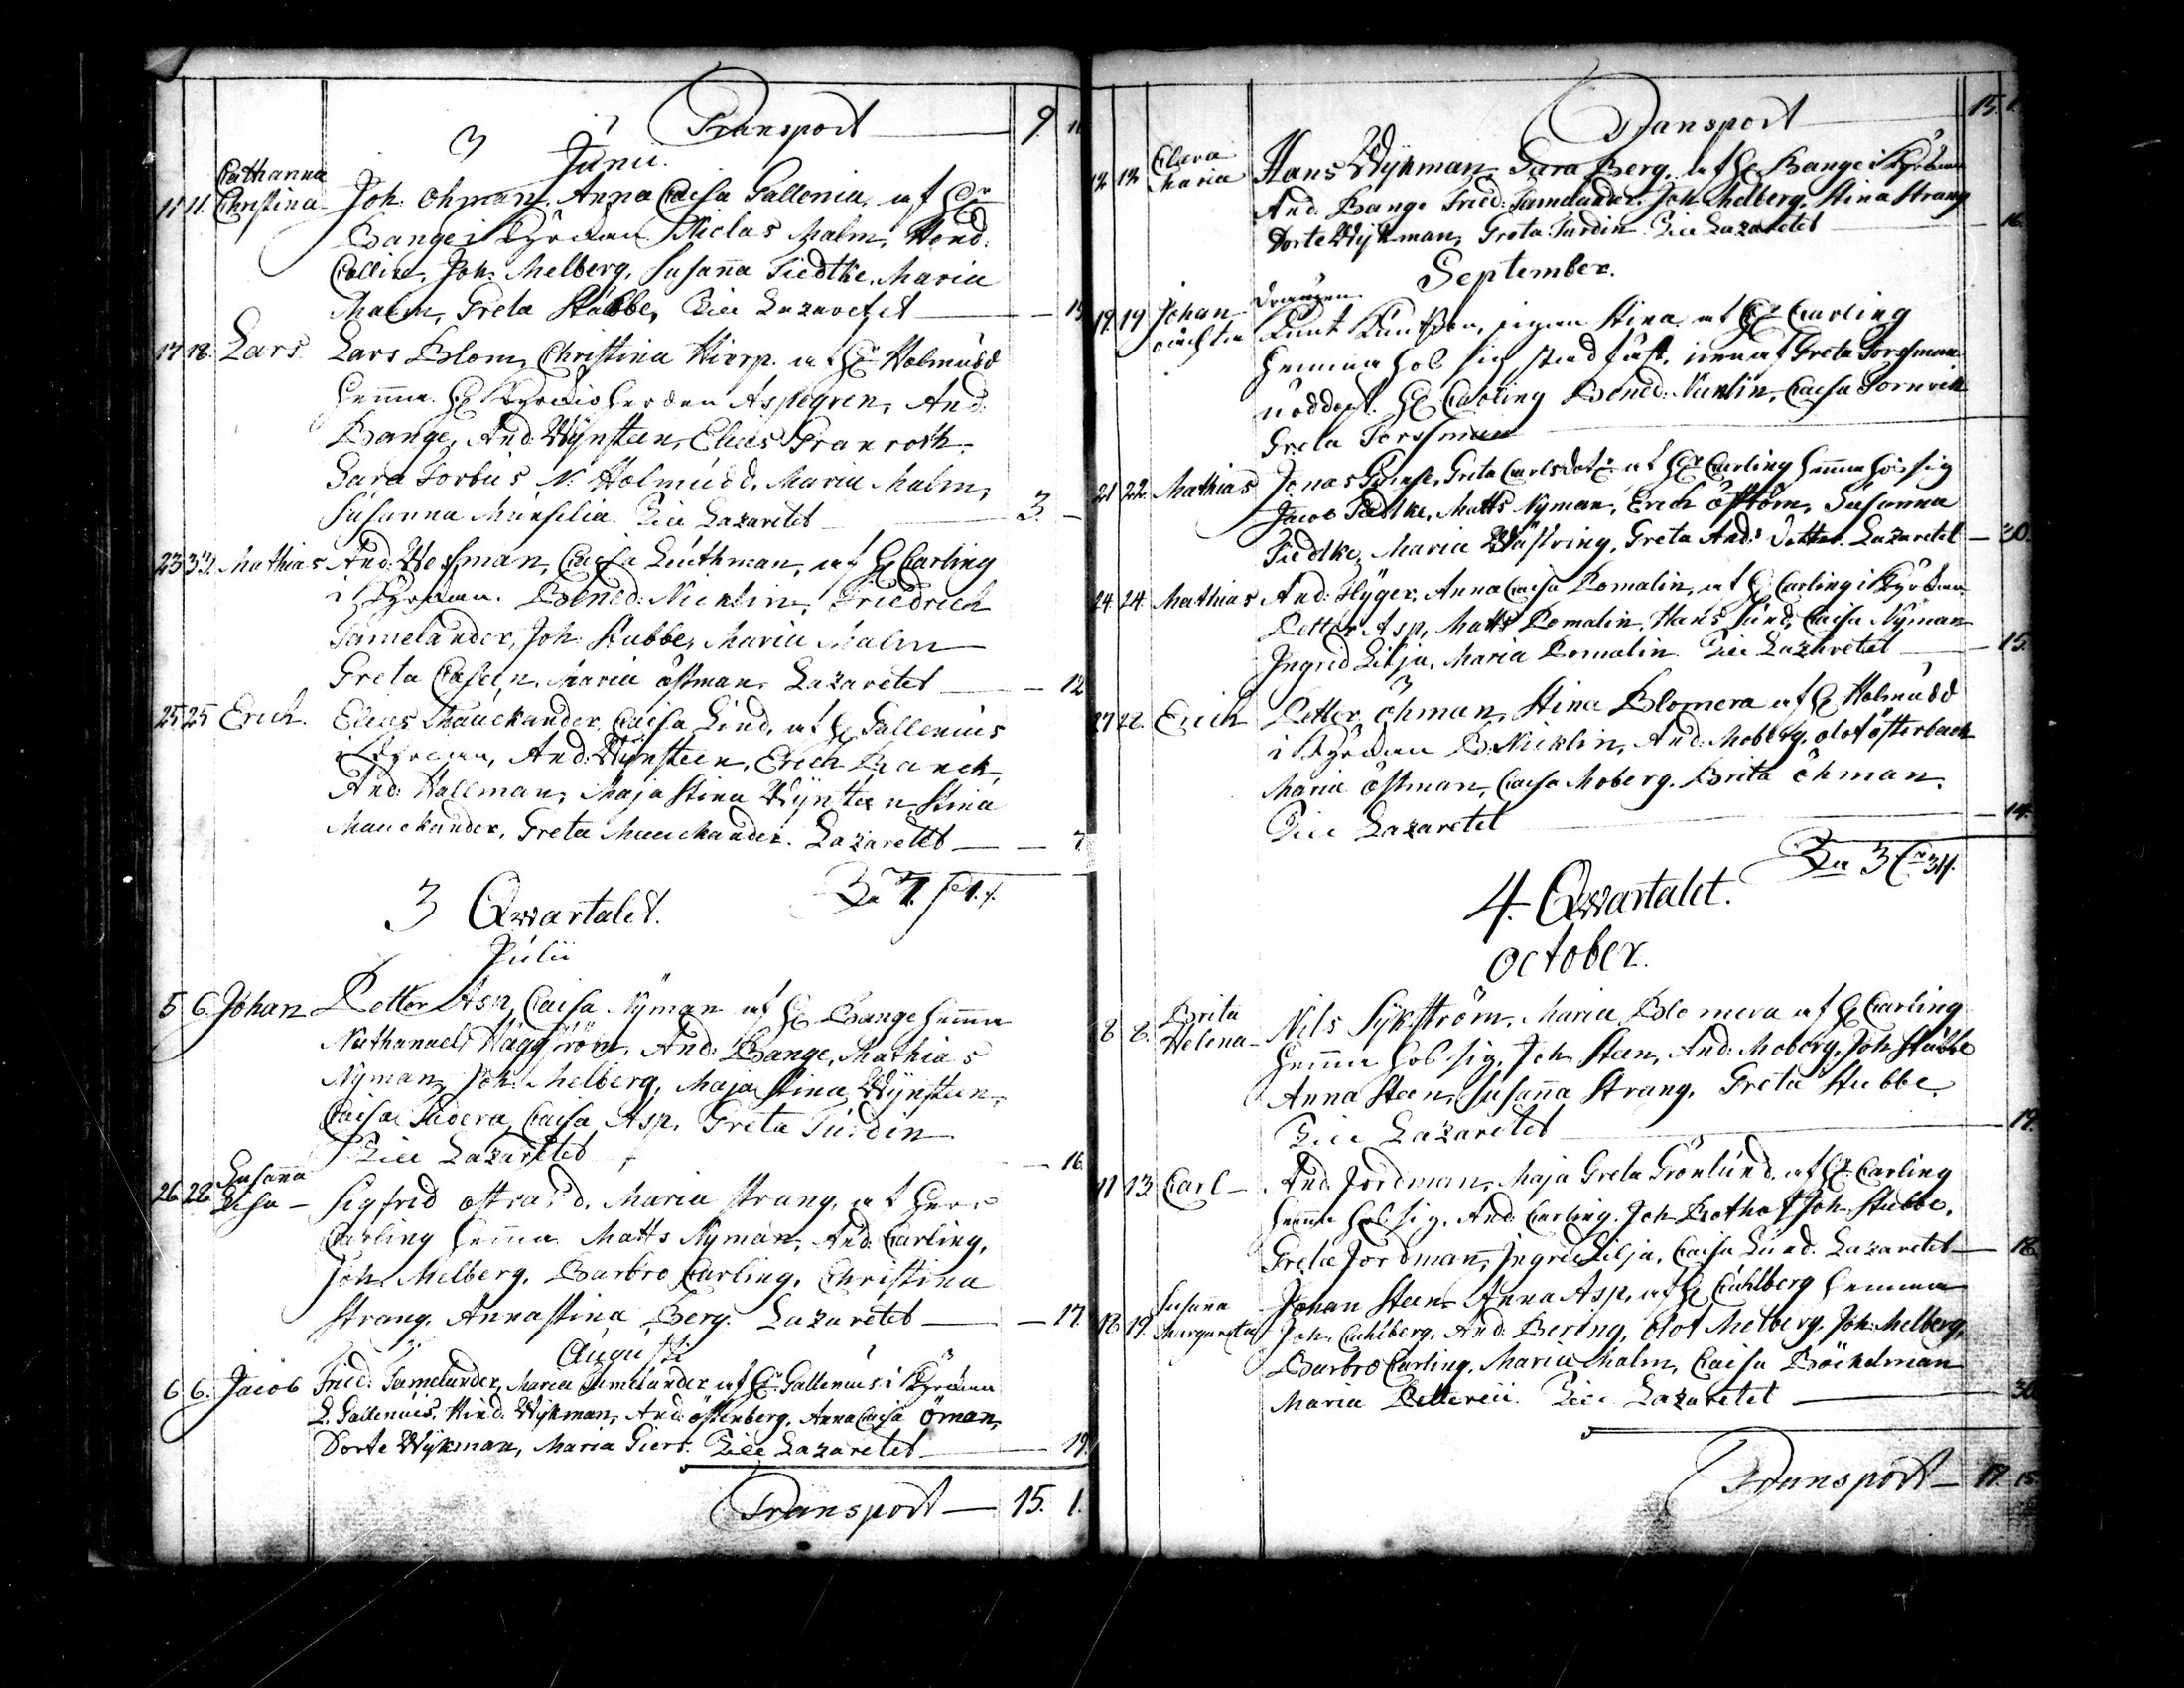 Transport 9.
Junii
Cathanna
11 11. Christina Joh: Öhman, Anna Caisa Gallenia, af Hr
Bange i Kyrckan. Niclas Malm, Hend:
Collin, Joh: Melberg, Susanna Tiedtke, Maria
Malm, Greta Stubbe, Till Lazaretet
17 18. Lars Lars Blom, Christina Hierp. af Hr Holmudd
hemma. Hr Kyrckioherden Aspegren, And:
Bange, And: Wynsteen, Elias Granroth,
Sara Forbus N. Holmudd, Maria Malm,
Susanna Munselia. Till Lazaretet 3. —
23 Mathias And: Wessman, Caisa Luthman, af H Carling
i Kyrckan. Bened: Nicklin, Friedrich
Tamelander, Joh: Stubbe, Maria Malm
Greta Caseen, Maria Östman. Lazaretet — 12
25 25 Erich. Elias Mauckander, Caisa Lind, af H Gallenius
i Kyrckan, And: Wynsteen, Erich Ranck,
And: Hallman, Maja Stina Wynsteen, Stina
Mauckander, Greta Mauckander. Lazaretet — 7.
3 Qwartalet.
Julii
5 6. Johan Petter Asp, Caisa Nyman af H Bange hemma
Nathanael Häggström, And: Bange, Mathias
Nyman, Joh: Melberg, Maja Stina Wynsteen,
Caisa Caisa Asp, Greta Turdin
Till Lazaretet — 16.
Susanna
26 28 Lisa – Sigfrid Maria Strang, af Herr
Carling hemma. Matts Nyman, And: Carling,
Joh: Melberg, Barbro Carling, Christina
Strang, Anna Stina Berg. Lazaretet — 17.
Augusti
6 6. Jacob Fried: Tamelander, Maria Tamelander af Hr Gallenius i Kyrckan
L. Gallenius, Hind: Wykman, And: Östenberg, Anna Caisa Öman,
Dorte Wykman, Maria Giers. Till Lazaretet — 19.
Transport — 15. 1.
Transport 15. 1.
Clara
12 12 Maria Hans Wykman, Sara Berg. af H Bange i Kyrckan
And: Bange Fried: Tamelander. Joh: Melberg, Stina Strang
Dorte Wykman, Greta Turdin. Till Lazaretet — 16.
September.
drängen
19 19 Johan Knut Knutsson, pigan Stina af Hr Carling
oächta hemma
nöddöpt. H Carling Bened: Nicklin, Caisa
Greta Forssman
21 22. Mathias Jonas Greta Carlsdotr af Hr Carling hemma hos sig
Jacob Tiedtke, Matts Nyman, Erich Öström, Susanna
Tiedtke, Maria Wästring, Greta And:s dotter. Lazaretet — 30.
24 24. Mathias And: Flyger, Anna Caisa Pomalin, af H Carling i Kyrckan
Petter Asp, Matts Pomalin, Hans Lund, Caisa Nyman
Ingrid Lilja, Maria Pomalin. Till Lazaretet — 15.
27 28. Erich Petter Öhman, Stina Blomera af H Holmudd
i Kyrckan B: Nicklin, And: Moberg, Olof Österback
Maria Östman, Caisa Moberg. Brita Öhman.
Till Lazaretet — 14.
4. Qwartalet.
October.
Brita
8 8. Helena – Nils Sykström, Maria Blomera af H Carling
hemma hos sig. Joh: Steen, And: Moberg, Joh: Stubbe
Anna Steen, Susanna Strang. Greta Stubbe.
Till Lazaretet 17.
11 13. Carl – And: Jordman, Maja Greta Grönlund. af Hr Carling
hemma hos sig. And: Carling. Joh: Bothof Joh: Stubbe.
Greta Jordman, Ingrid Lilja, Caisa Lund. Lazaretet — 18.
Susanna Johan Steen Anna Asp, af H Cuhlberg hemma
18. 19. Margareta Joh: Cuhlberg. And: Bering, Olof Melberg, Joh: Melberg,
Barbro Carling, Maria Malm, Caisa Böckelman
Maria Till Lazaretet 30.
Transport — 17. 15.